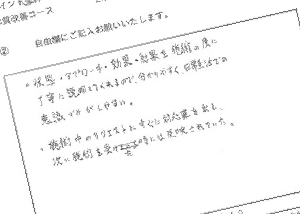 質改善コース
② 自由欄にご記入お願いいたします。
・状態・アプローチ・効果・結果を施術の度に
丁寧に説明してくれるので、分かりやすく日常生活での
意識づけがしやすい。
・施術中のリクエストにすぐに対応策を出し、
次に施術を受けた時には反映されていた。